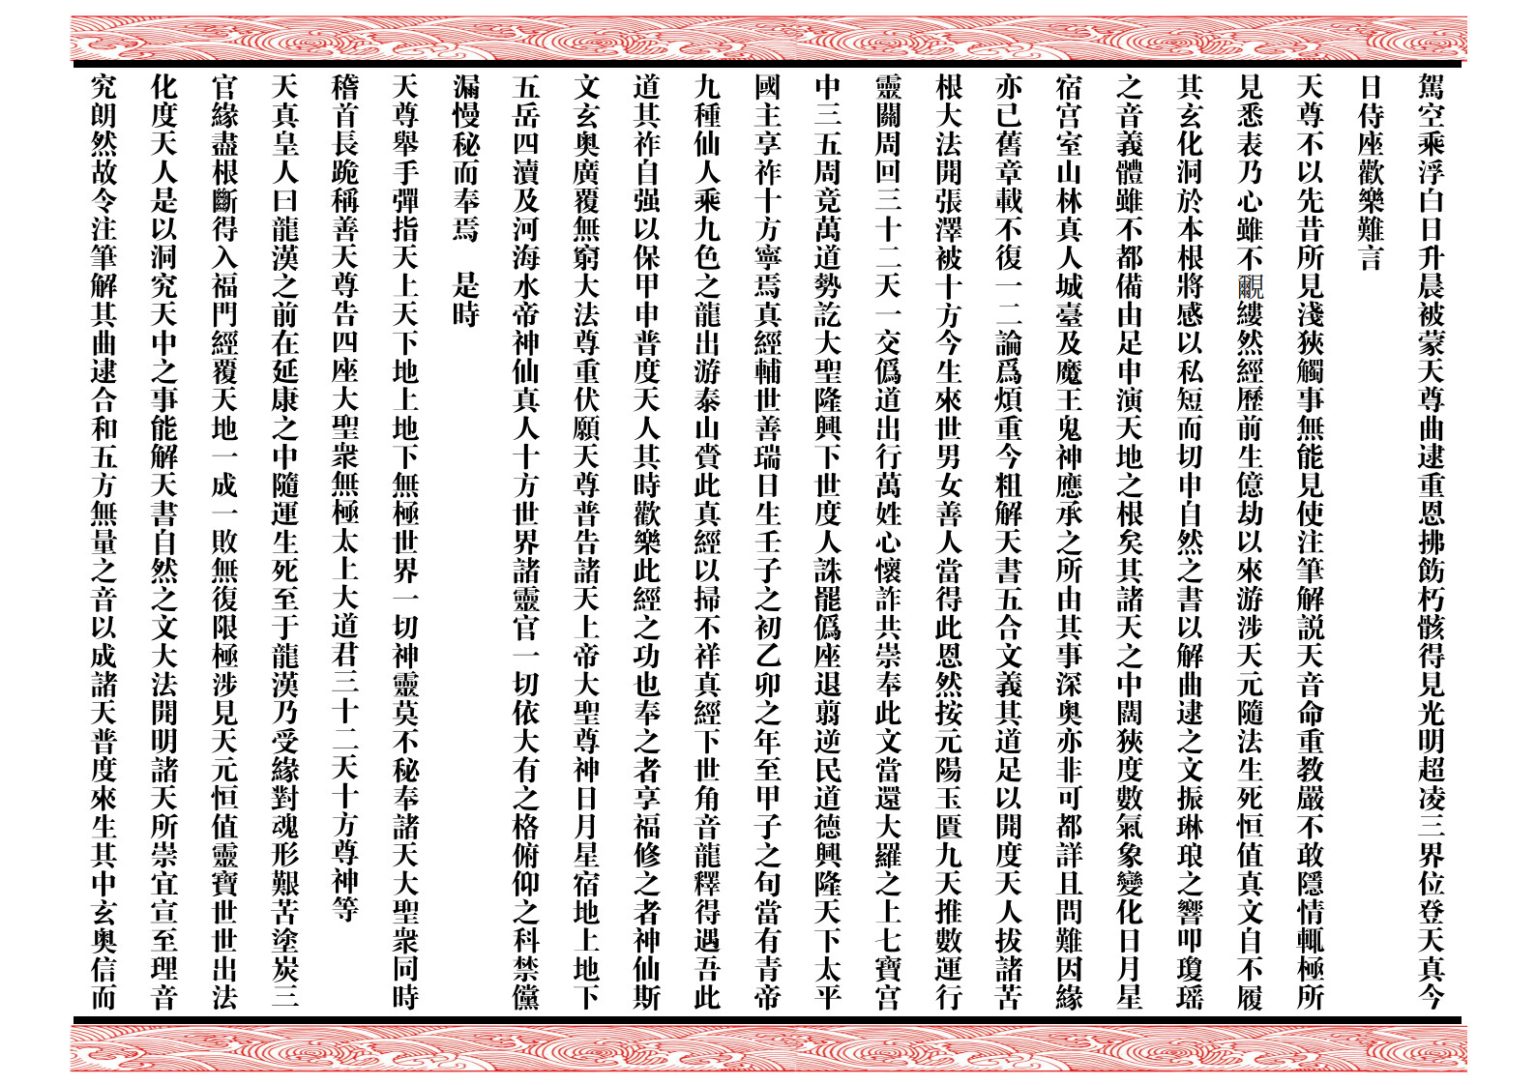 駕空乘浮白日升晨被蒙天尊曲逮重恩拂飭朽骸得見光明超凌三界位登天真今
日侍座歡樂難言
天尊不以先昔所見淺狹觸事無能見使注筆解説天音命重教嚴不敢隱情輒極所
見悉表乃心雖不覼縷然經歷前生億劫以來游涉天元隨法生死恒值真文自不履
其玄化洞於本根將感以私短而切申自然之書以解曲逮之文振琳琅之響叩瓊瑶
之音義體雖不都備由足申演天地之根矣其諸天之中闊狹度數氣象變化日月星
宿宫室山林真人城臺及魔王鬼神應承之所由其事深奥亦非可都詳且問難因緣
亦已舊章載不復一二論爲煩重今粗解天書五合文義其道足以開度天人拔諸苦
根大法開張澤被十方今生來世男女善人當得此恩然按元陽玉匱九天推數運行
靈關周回三十二天一交僞道出行萬姓心懷詐共崇奉此文當還大羅之上七寶宫
中三五周竟萬道勢訖大聖隆興下世度人誅罷僞座退翦逆民道德興隆天下太平
國主享祚十方寧焉真經輔世善瑞日生壬子之初乙卯之年至甲子之旬當有青帝
九種仙人乘九色之龍出游泰山賫此真經以掃不祥真經下世角音龍釋得遇吾此
道其祚自强以保甲申普度天人其時歡樂此經之功也奉之者享福修之者神仙斯
文玄奥廣覆無窮大法尊重伏願天尊普告諸天上帝大聖尊神日月星宿地上地下
五岳四瀆及河海水帝神仙真人十方世界諸靈官一切依大有之格俯仰之科禁儻
漏慢秘而奉焉　是時
天尊舉手彈指天上天下地上地下無極世界一切神靈莫不秘奉諸天大聖衆同時
稽首長跪稱善天尊告四座大聖衆無極太上大道君三十二天十方尊神等
天真皇人曰龍漢之前在延康之中隨運生死至于龍漢乃受緣對魂形艱苦塗炭三
官緣盡根斷得入福門經覆天地一成一敗無復限極涉見天元恒值靈寶世世出法
化度天人是以洞究天中之事能解天書自然之文大法開明諸天所崇宜宣至理音
究朗然故令注筆解其曲逮合和五方無量之音以成諸天普度來生其中玄奥信而